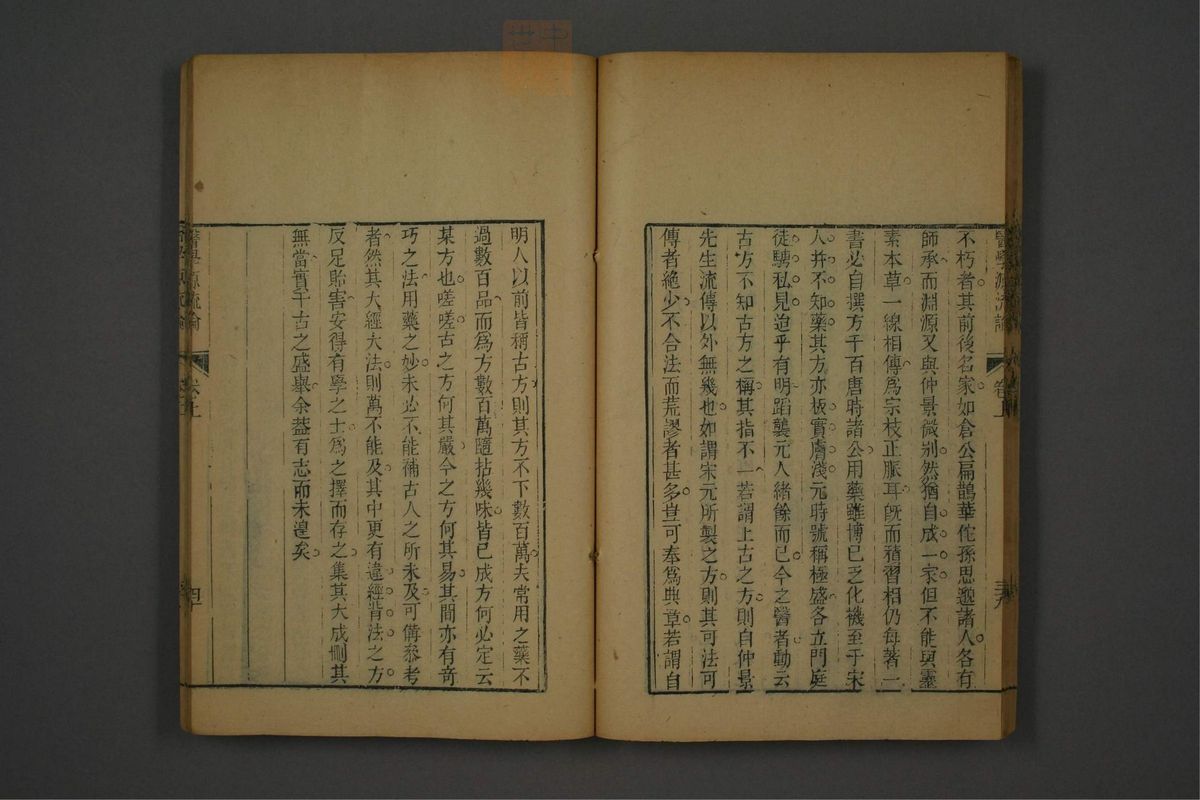 醫學源流論
卷上
不朽者其前後名家如倉公扁鵲華佗孫思邈諸人各有
師承而淵源又與仲景微別然猶自成一家但不能與靈
素本草一線相傳爲宗枝正脈耳旣而積習相仍每著一
書必自撰方千百唐時諸公用藥雖博已乏化機至于宋
人并不知藥其方亦板實膚淺元時號稱極盛各立門庭
徒騁私見迨乎有明蹈襲元人緒餘而已今之醫者動云
古方不知古方之稱其指不一若謂上古之方則自仲景
先生流傳以外無幾也如謂宋元所製之方則其可法可
傳者絶少不合法而荒謬者甚多豈可奉爲典章若謂自
明人以前皆稱古方則其方不下數百萬夫常用之藥不
過數百品而爲方數百萬隨拈幾味皆已成方何必定云
某方也嗟嗟古之方何其嚴今之方何其易其間亦有奇
巧之法用藥之妙未必不能補古人之所未及可備參考
者然其大經大法則萬不能及其中更有違經背法之方
反足貽害安得有學之士爲之擇而存之集其大成刪其
無當實千古之盛舉余葢有志而未遑矣
醫學源流論
卷上
四十